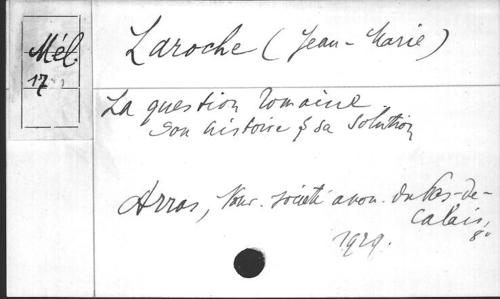 Mél.
17
Laroche (Jean-Marie)
La question romaine
son histoire & sa solution
Arras, Nour. société anon. du Pas-de-
Calais,
8°
1929.